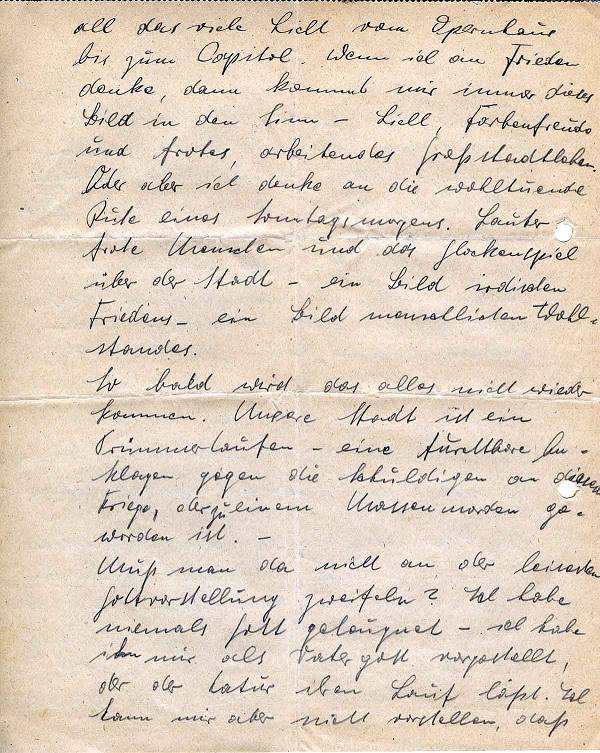 all das viele Licht vom Opernhaus
bis zum Capitol. Wenn ich an Frieden
denke, dann kommt mir immer dieses
Bild in den Sinn – Licht, Farbenfreude
und frohes, arbeitendes Großstadtleben.
Oder aber ich denke an die wohltuende
Ruhe eines Sonntagsmorgens. Lauter
frohe Menschen und das Glockenspiel
über der Stadt – ein Bild irdischen
Friedens – ein Bild menschlichen Wohl-
standes.
So bald wird das alles nicht wieder
kommen. Unsere Stadt ist ein
Trümmerhaufen – eine furchtbare An-
klagen gegen die Schuldigen an diesem
Kriege, der zu einem Massenmorden ge-
worden ist. –
Muß man da nicht an der
Gottvorstellung zweifeln? Ich habe
niemals Gott geleugnet – ich habe
ihn mir als Vatergott vorgestellt,
der der Natur ihren Lauf läßt. Ich
kann mir aber nicht vorstellen, daß